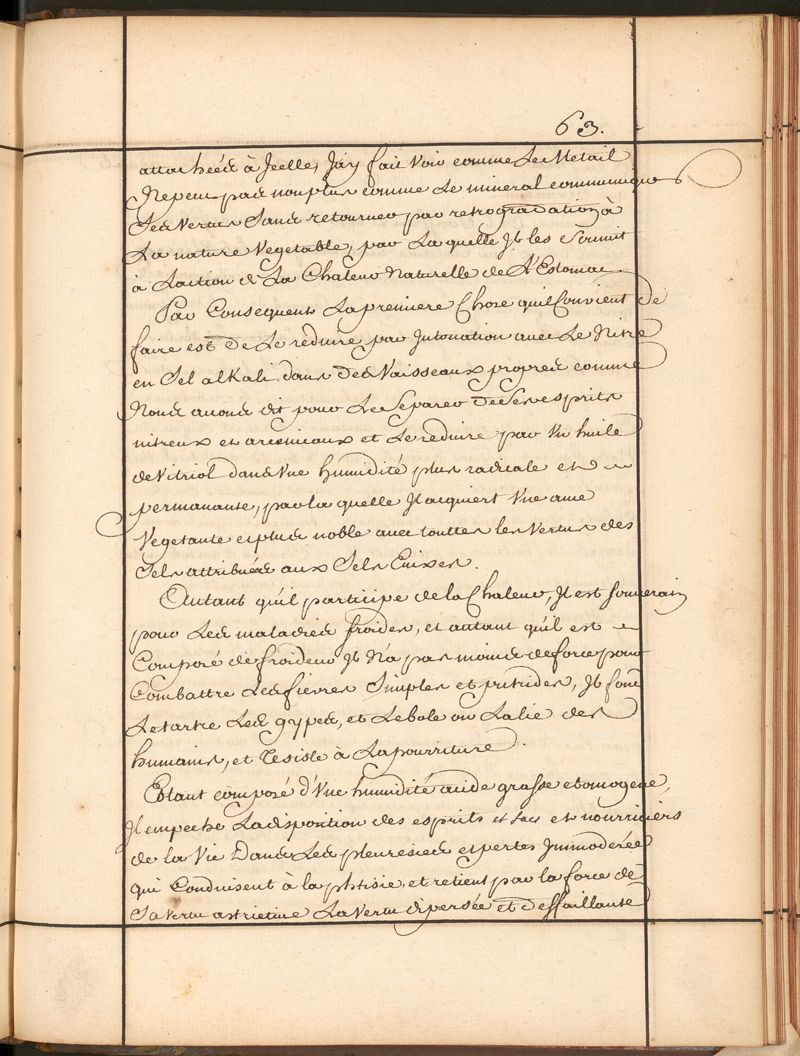 63.
attachéés à Jcelle, J'ay fait voir comme Le Metail
Nepeut pas nonplus comme Le mineral communiquer
Ses Vertus Sans retourner par retrogradation à
La nature Vegetable, par La quelle Jl les Soumit
à Laction de La Chaleur Naturelle de L'Estomac
Par Consequent Lapremiere Chose quil Convient de
faire est De Le réduire par Jntonation avec Le Nitre
en Sel alKali dans des Vaisseaux propres comme
Nous avons dit pour Le Separer de Ses esprits
nitreux et arcenicaux et Le reduire par Vn huile
de Vitriol dans Vne humidité plus radicale et
permanante, par la quelle Jl acquiert Vne ame
Vegetante et plus noble avec touttes les Vertus des
Sels attribuées aux Sels Enixes.
Autant qu'il participe de la Chaleur, Jl est Souverain
pour Les maladies froides, et autant quil est
Composé de froideur Jl N'a pas moins de force pour
Combattre Les fievres Simples et putrides, Jl fond
Le tartre Les gypes, et Le bole ou La lie des
humains, et Resiste à La pourriture.
Estant composé d'Vne humidité acide grasse etomogene,
Jl empeche La disposition des esprits et sucs et nourriciers
de la Vie Dans Les pleuresies et pertes Jmmoderées
qui Conduisent à la phtisie, et retient par la force de
Sa Vertu astrictive La Vertu dispersée et deffaillante